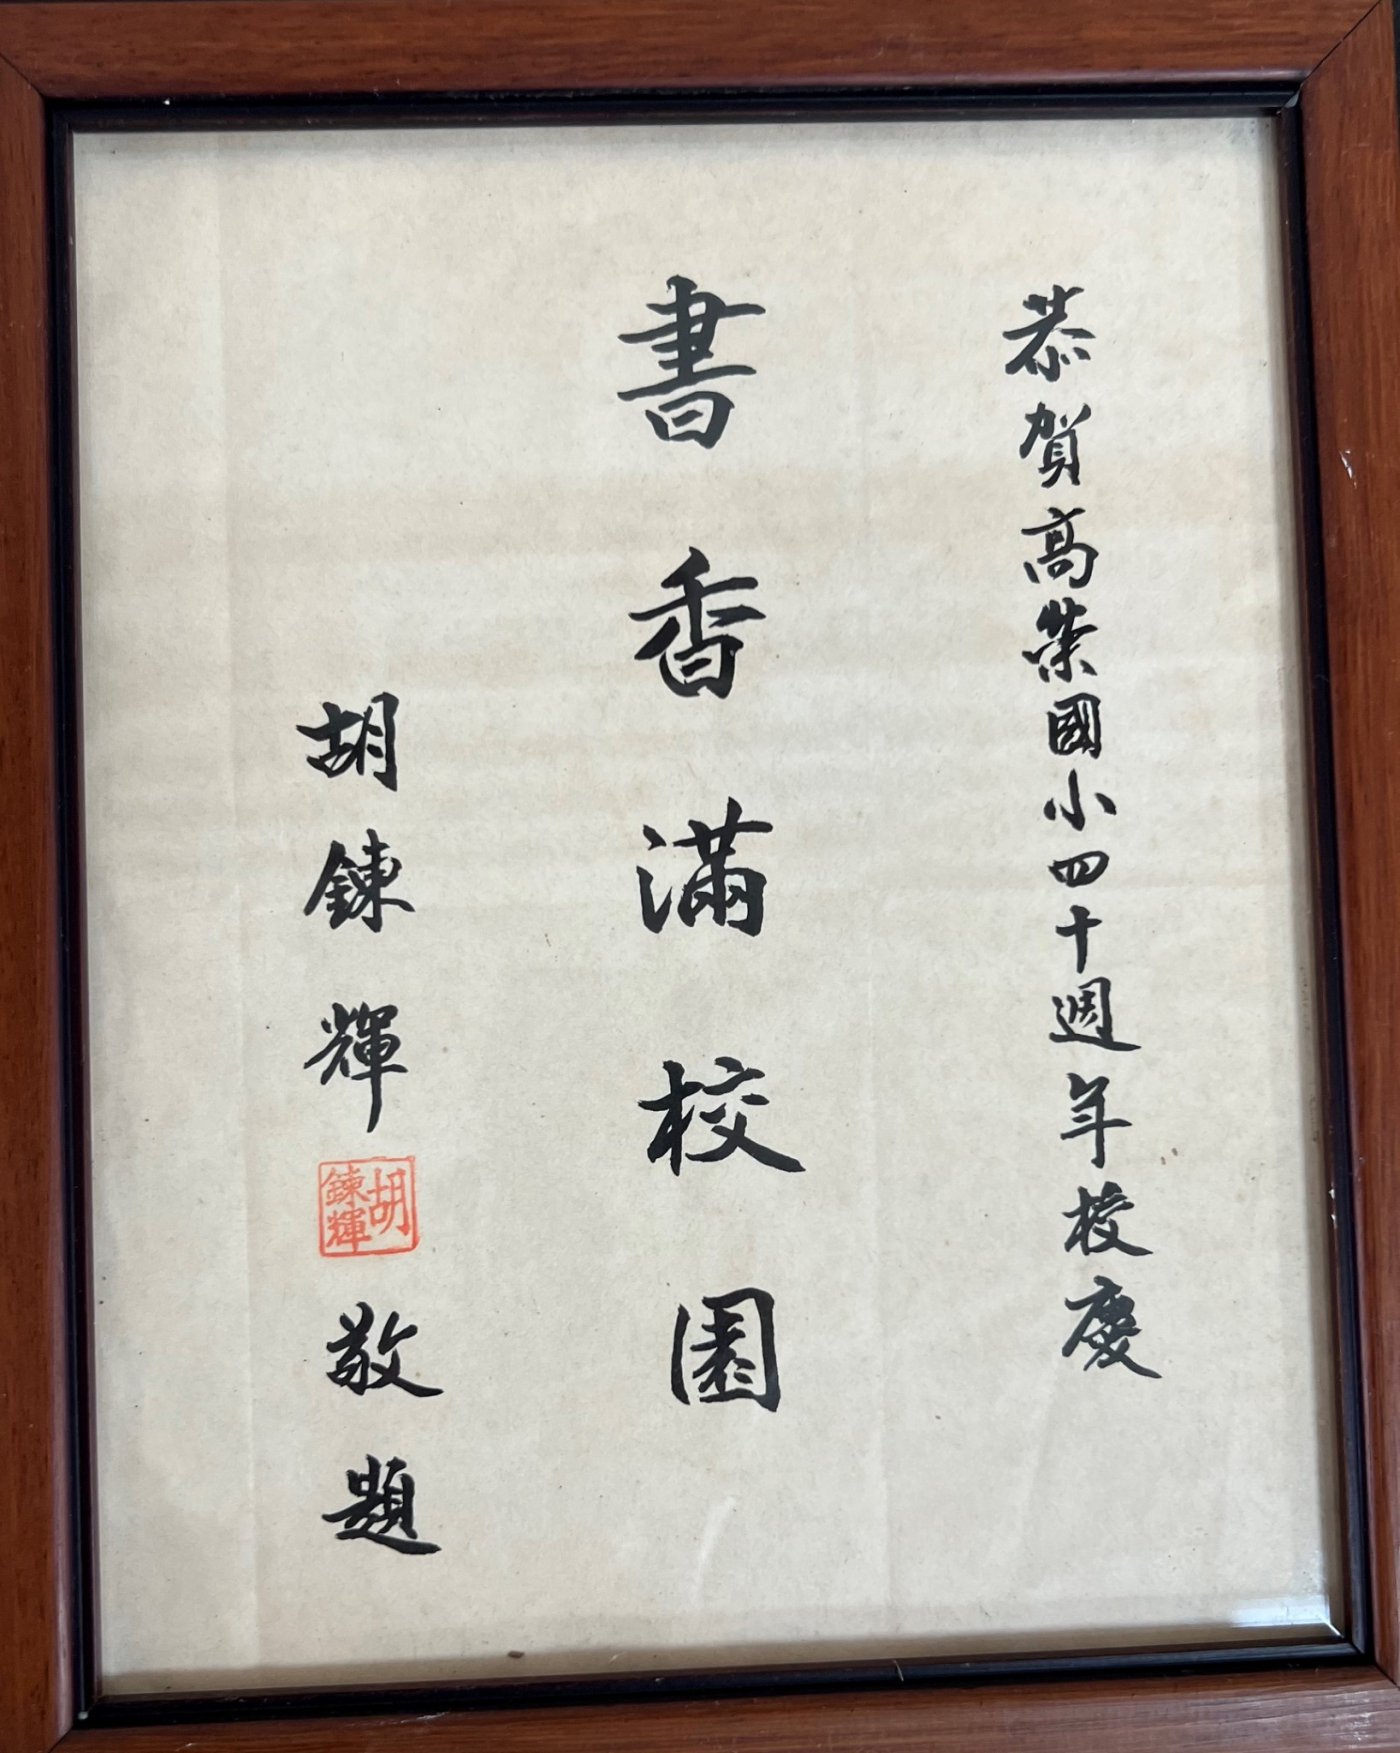 恭賀高榮國小四十週年校慶
書香滿校園
胡鍊輝
胡鍊輝
敬題